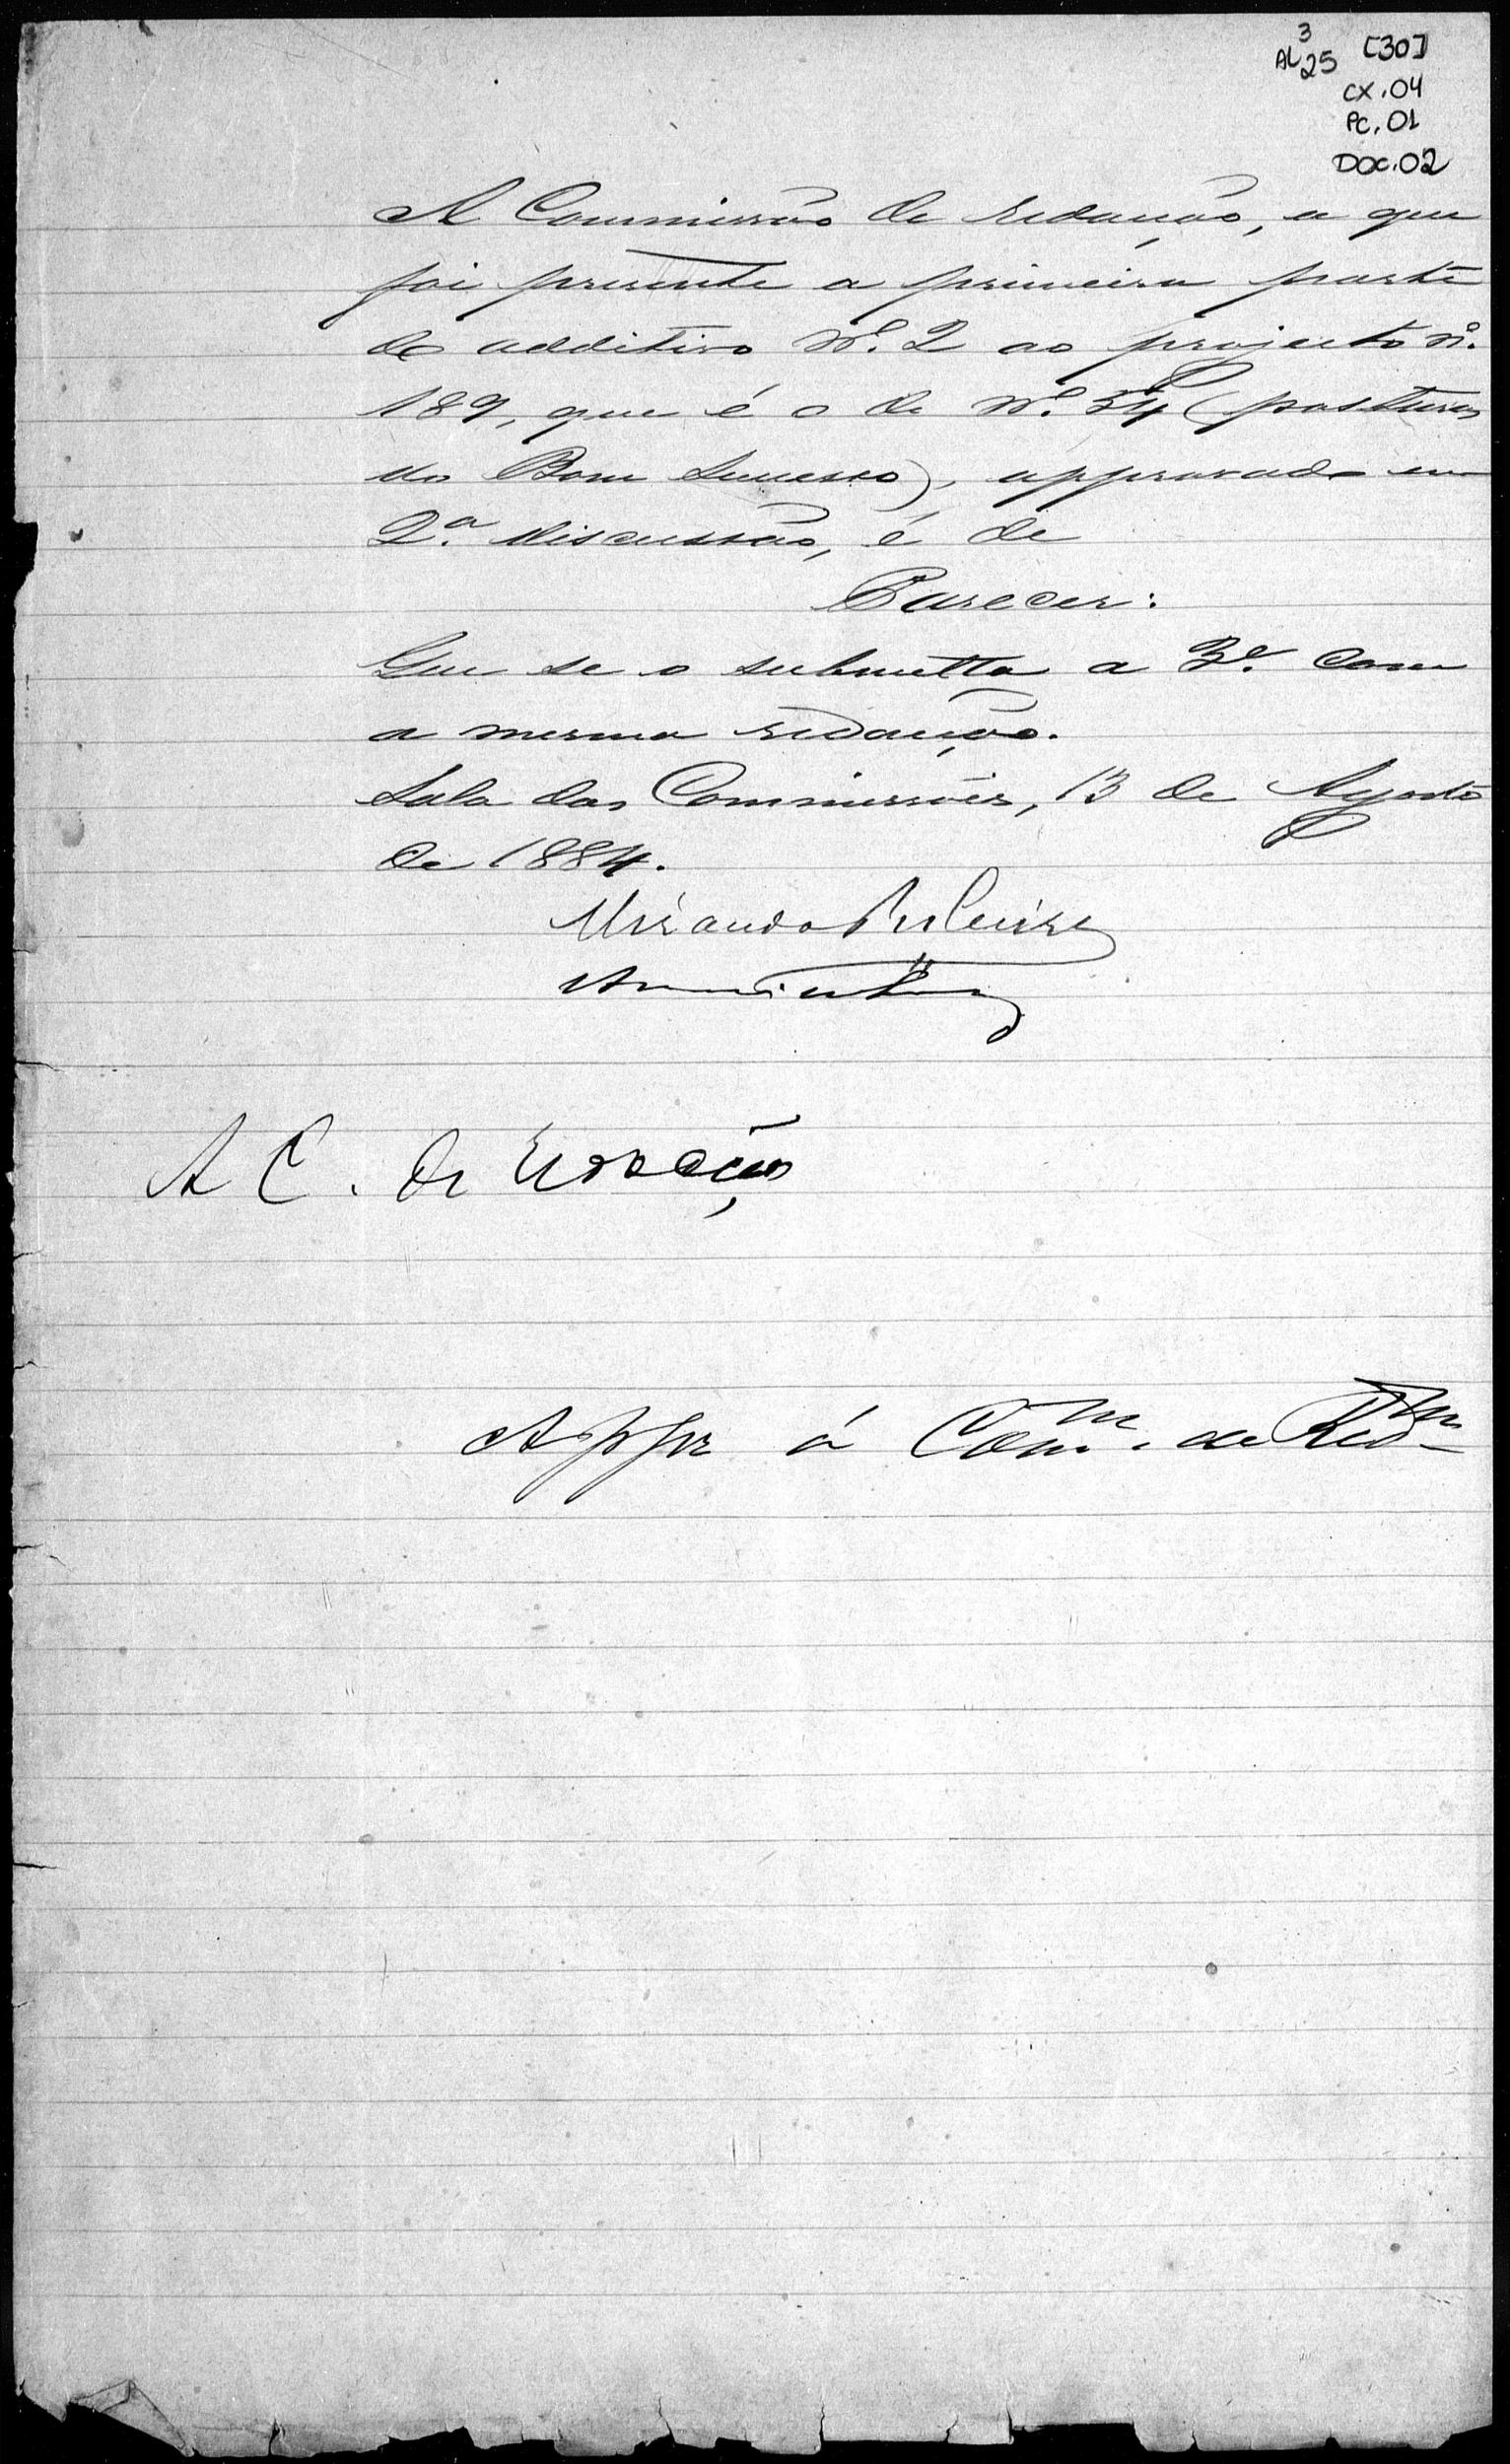 AL 3 25 [30]
CX.04
PC.01
DOC.02
A Commissão de redacção, a que
foi presente a primeira parte
do additivo Nº. 2 ao projecto nº.
189, que é o de Nº. 54 (posturas
do Bom Successo), approvado em
2.ª discussão, é de
Parecer:
Que se o submetta a 3ª. com
a mesma redacção.
Sala das Commissões, 13 de Agosto
de 1884.
Miranda Ribeiro
A C. de redacção
Appr á Com.m de Redm